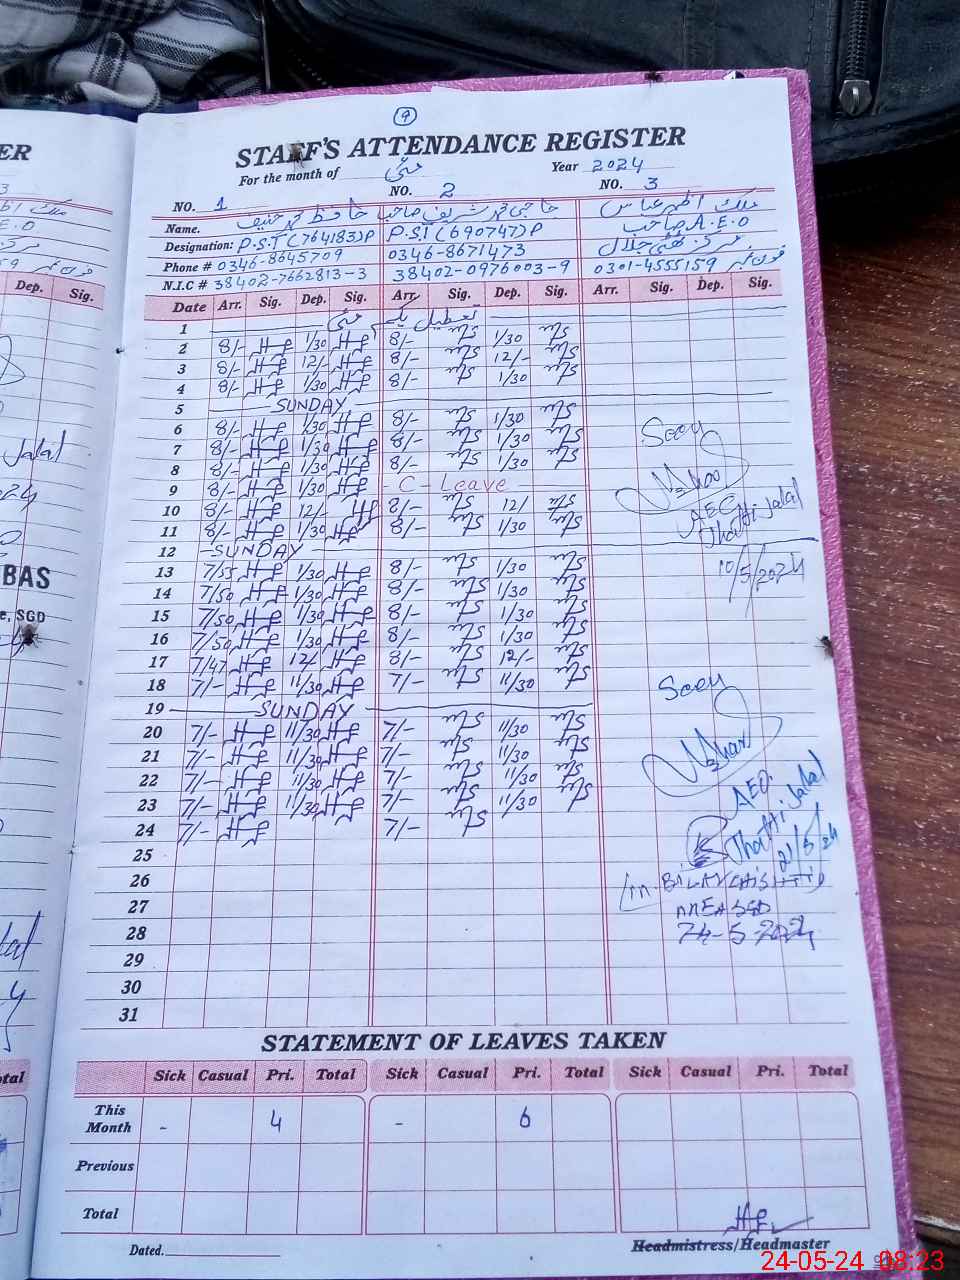 9
STAFF'S ATTENDANCE REGISTER
For the month of مئی Year 2024
NO. 1 NO. 2 NO. 3
Name. حافظ محمد حنیف حاجی محمد شریف صاحب ملک اظہر عباس
Designation: P.S.T (764183)P P.S.T (690747)P A.E.O صاحب
Phone # 0346-8645709 0346-8671473 مرکز تھٹی جلال
N.I.C # 38402-7662813-3 38402-0976003-9 0301-4555159 فون نمبر
Date Arr. Sig. Dep. Sig. Arr. Sig. Dep. Sig. Arr. Sig. Dep. Sig.
1 تعطیل یکم مئی
2 8/- 1/30 8/- 1/30
3 8/- 12/- 8/- 12/-
4 8/- 1/30 8/- 1/30
5 SUNDAY
6 8/- 1/30 8/- 1/30
7 8/- 1/30 8/- 1/30
8 8/- 1/30 8/- 1/30
9 8/- 1/30 - C - Leave
10 8/- 12/- 8/- 12/
11 8/- 1/30 8/- 1/30
12 SUNDAY
13 7/55 1/30 8/- 1/30
14 7/50 1/30 8/- 1/30
15 7/50 1/30 8/- 1/30
16 7/50 1/30 8/- 1/30
17 7/47 12/- 8/- 12/-
18 7/- 11/30 7/- 11/30
19 SUNDAY
20 7/- 11/30 7/- 11/30
21 7/- 11/30 7/- 11/30
22 7/- 11/30 7/- 11/30
23 7/- 11/30 7/- 11/30
24 7/- 7/-
25
26
27
28
29
30
31
Seen
AEO
Thathi Jalal
10/5/2024
Seen
AEO
Thathi Jalal
21/5/24
STATEMENT OF LEAVES TAKEN
Sick Casual Pri. Total Sick Casual Pri. Total Sick Casual Pri. Total
This Month - 4 - 6
Previous
Total
Dated. Headmistress/Headmaster
24-05-24 08:23
ER
Dep. Sig.
Jalal
BAS
e, SGD
otal